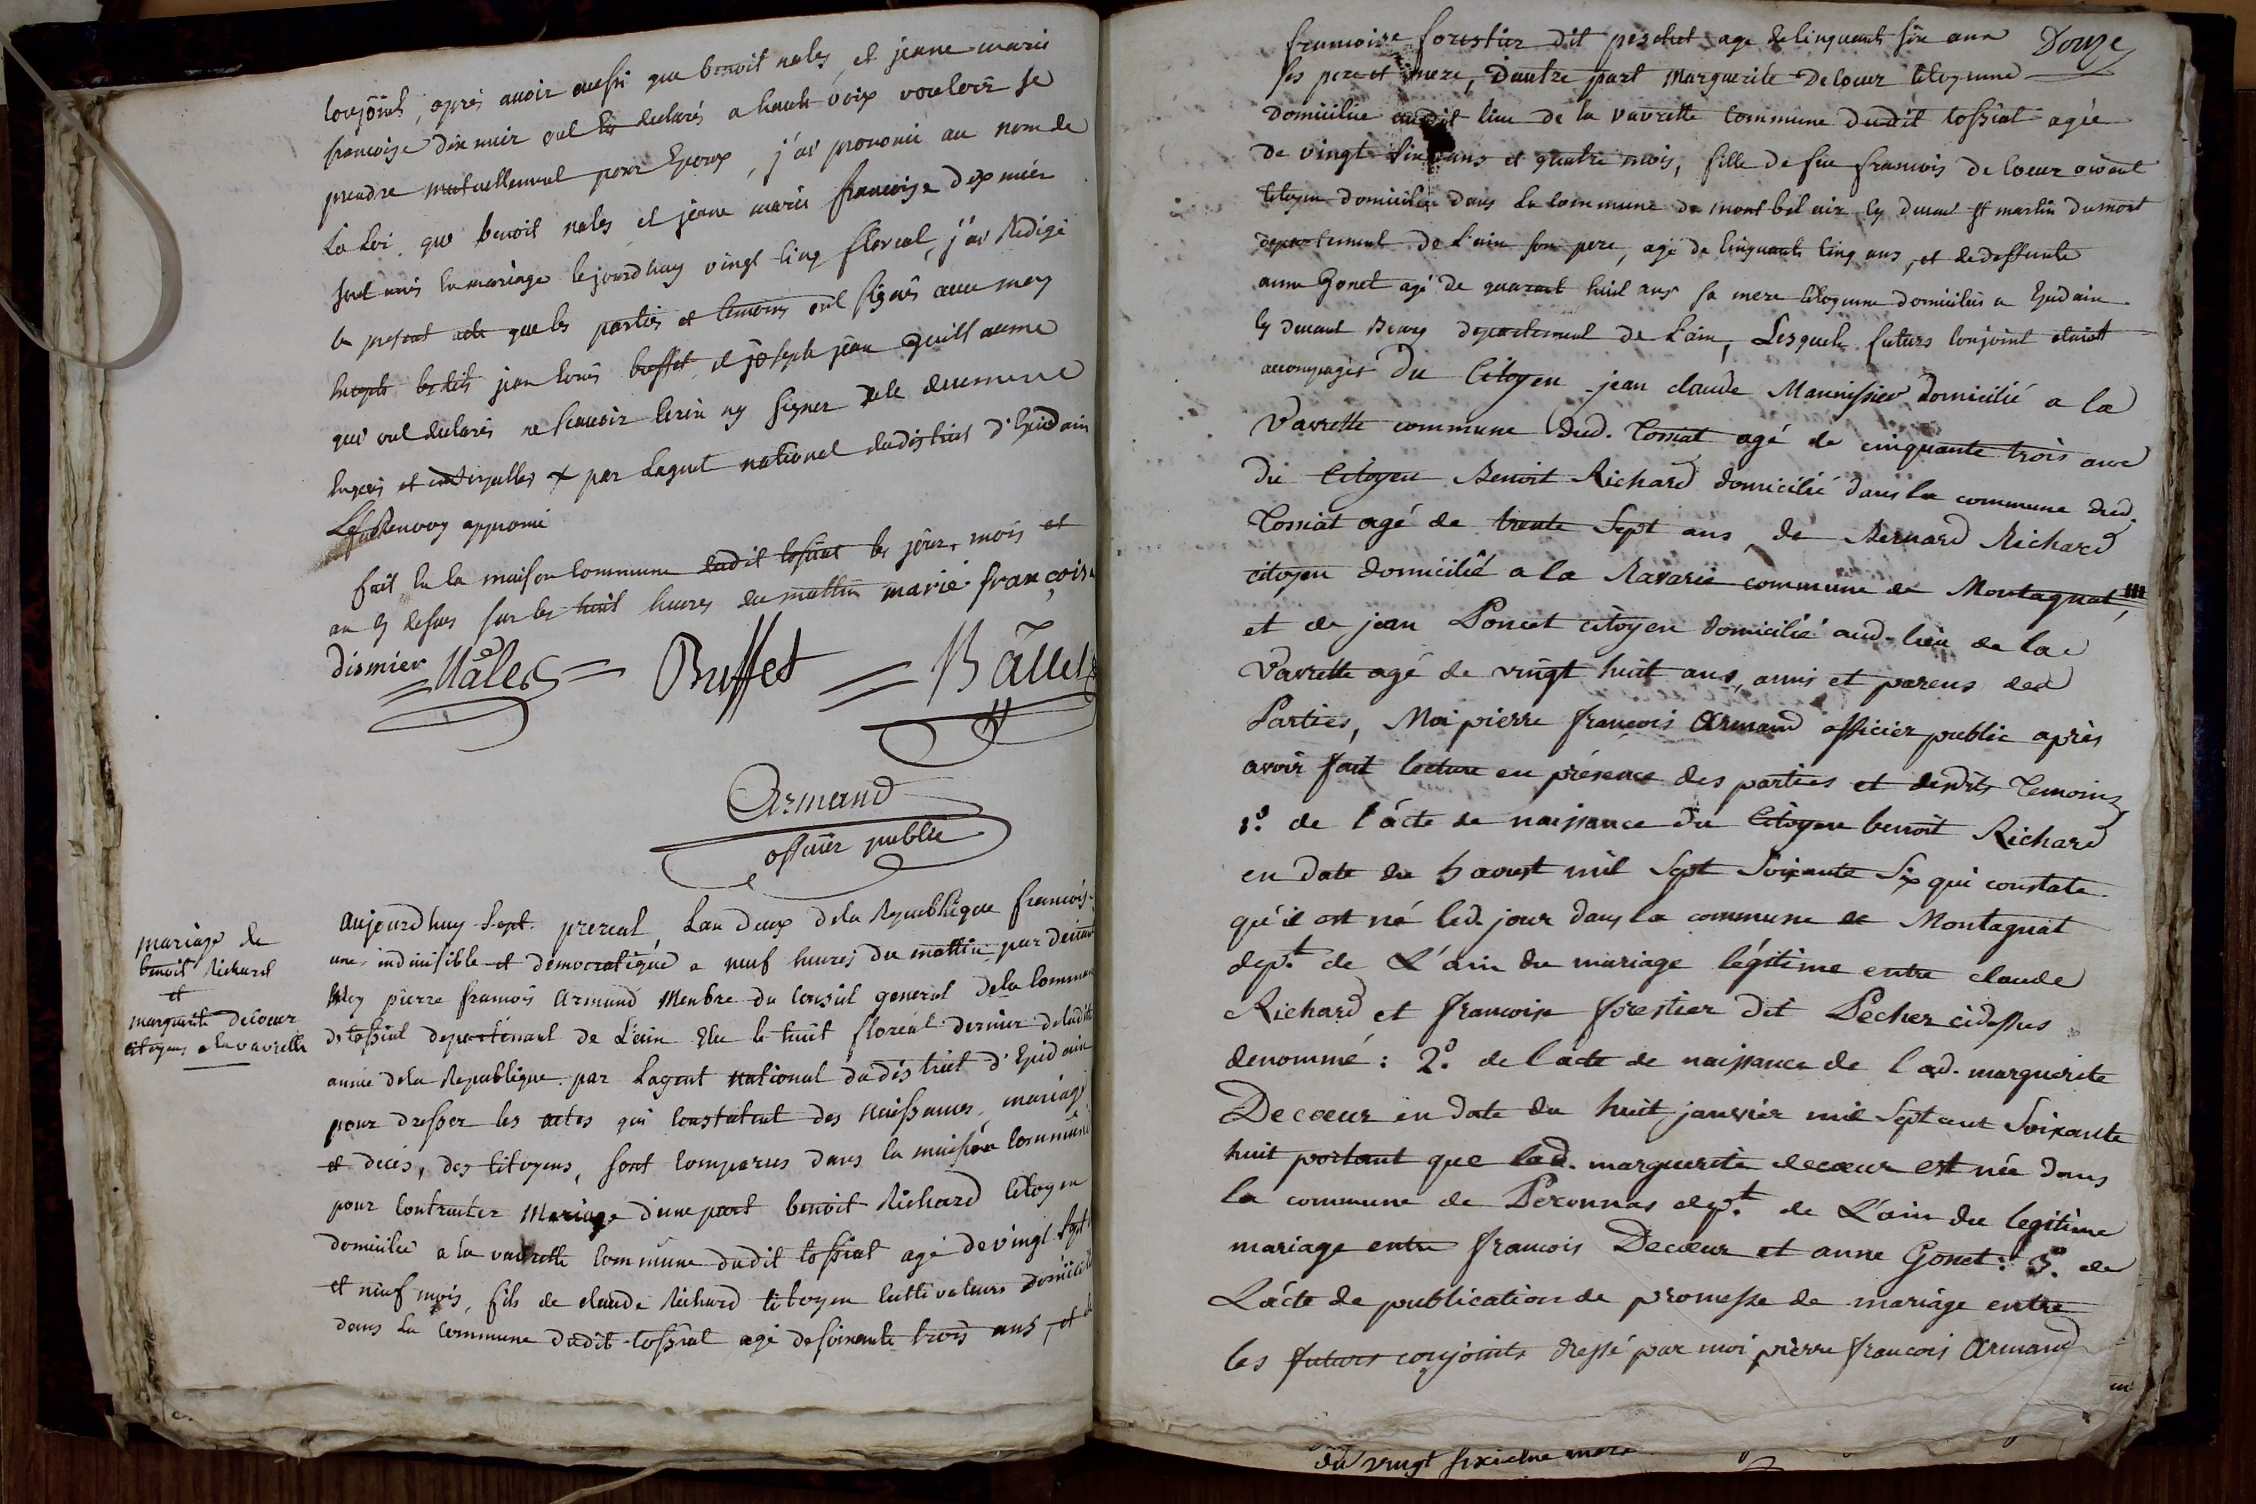 conjoints, après avoir aussi que benoit nales, et jeanne marie
francoise dix mier ont declarés a haute voix vouloir se
prendre mutuellement pour Epoux, j'ai prononcé au nom de
La Loi que benoit nales et jeanne marie francoise dixmier
sont unis en mariage le jourdhuy vingt cinq floreal, j'ai Redigé
le present acte que les parties et temoins ont signés avec moy
Excepté jean louis buffet et joseph jean Guillaume
qui ont declarés ne scavoir Ecrire ny signer de ce
par Lagent national du district d'Epid ain
Renvoy approuvé
fait En la maison commune dudit tossiat les jour, mois et
an Cy dessus sur les huit heures du mattin marie françoise
dismier Nâles Buffet
Armand
officier public
mariage de
benoit Richard
et
marguerite decœur
citoyens a la vavrette
Aujourdhuy Sept prereal Lan deux dela Republique francois
une indivisible et démocratique a neuf heures du mattin par devant
Moy pierre francois Armand Menbre du Conseil general dela Commune
de tossiat departemant de L'ain Elu le huit floreal dernier de ladite
année dela Republique par Lagent national du district d'Epid ain
pour dresser les actes qui Constatent des naissances, mariages
et decès, des Citoyens, sont Comparus dans la maison Commune
pour Contracter Mariage d'une part benoit Richard Citoyen
domicilié a la vavrette Commune dudit tossiat agé de vingt Sept
et neuf mois, fils de claude Richard Citoyen Cultivateur domicilié
dans La Commune dudit tossiat agé de soixante trois ans, et de
Douze
francoise forestier dit peschet age de Cinquante six ans
ses pere et mere, Dautre part Marguerite De Coeur Citoyenne
domiciliée audit lieu de la vavrette Commune dudit tossiat agée
de vingt six ans et quatre mois, fille de feu francois de Coeur vivant
Citoyen domicilié dans La Commune de mont bel air Cy devant St martin du mont
departement de L'ain son pere, agé de Cinquante Cinq ans, et de deffunte
anne Gonet agé de quarante huit ans sa mere Citoyenne domiciliée a Epid ain
Cy devant Bourg departement de L'ain, Lesquels futurs Conjoint etaient
accompagés Du Citoyen jean claude Maunissier domicilié a la
Vavrette commune dud. Tossiat agé de cinquante trois ans
du Citoyen Benoit Richard domicilié dans la commune dud.
Tossiat agé de trente Sept ans, de Bernard Richard
citoyen domicilié a la Ravarie commune de Montagnat,
et de jean Poncet citoyen domicilié aud. lieu de la
Vavrette agé de vingt huit ans, amis et parens des
Parties, Moi pierre francois Armand officier public après
avoir fait lecture en présence des parties et desdits Temoins
1.º de l'acte de naissance du Citoyen benoit Richard
en date du aoust mil Sept Soixante Six qui constate
qu'il est né led. jour dans la commune de Montagnat
dep.t de L'ain du mariage légitime entre claude
Richard et francoise forestier dit Pecher cidessus
denommé : 2.º de l'acte de naissance de lad. marguerite
Decœur en date du huit janvier mil Sept cent Soixante
huit portant que lad. marguerite decœur est née dans
la commune de Peronnas dep.t de L'ain du legitime
mariage entre francois Decœur et anne Gonet : 3.º de
L'acte de publication de promesse de mariage entre
les futurs conjoints dressé par moi pierre francois Armand
du vingt sixieme